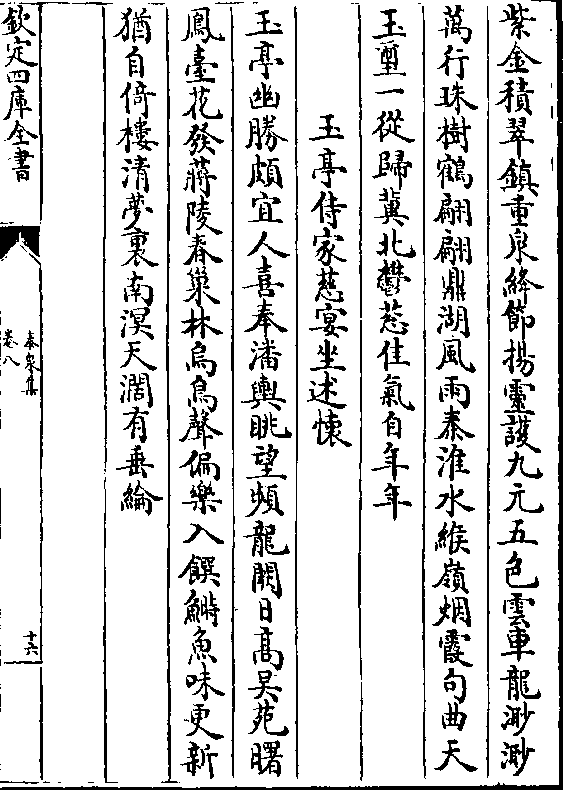 紫金積翠鎮重泉絳節揚靈護九元五色雲車龍渺渺
萬行珠樹鶴翩翩鼎湖風雨秦淮水緱嶺烟霞句曲天
玉璽一從歸冀北鬱葱佳氣自年年
玉亭侍家慈宴坐述懐
玉亭幽勝頗宜人喜奉潘輿眺望頻龍闕日髙吴苑曙
鳳臺花發蔣陵春巢林烏鳥聲偏樂入饌鰣魚味更新
猶自倚樓清夢裏南溟天濶有垂綸
欽定四庫全書
泰泉集
卷八
十六